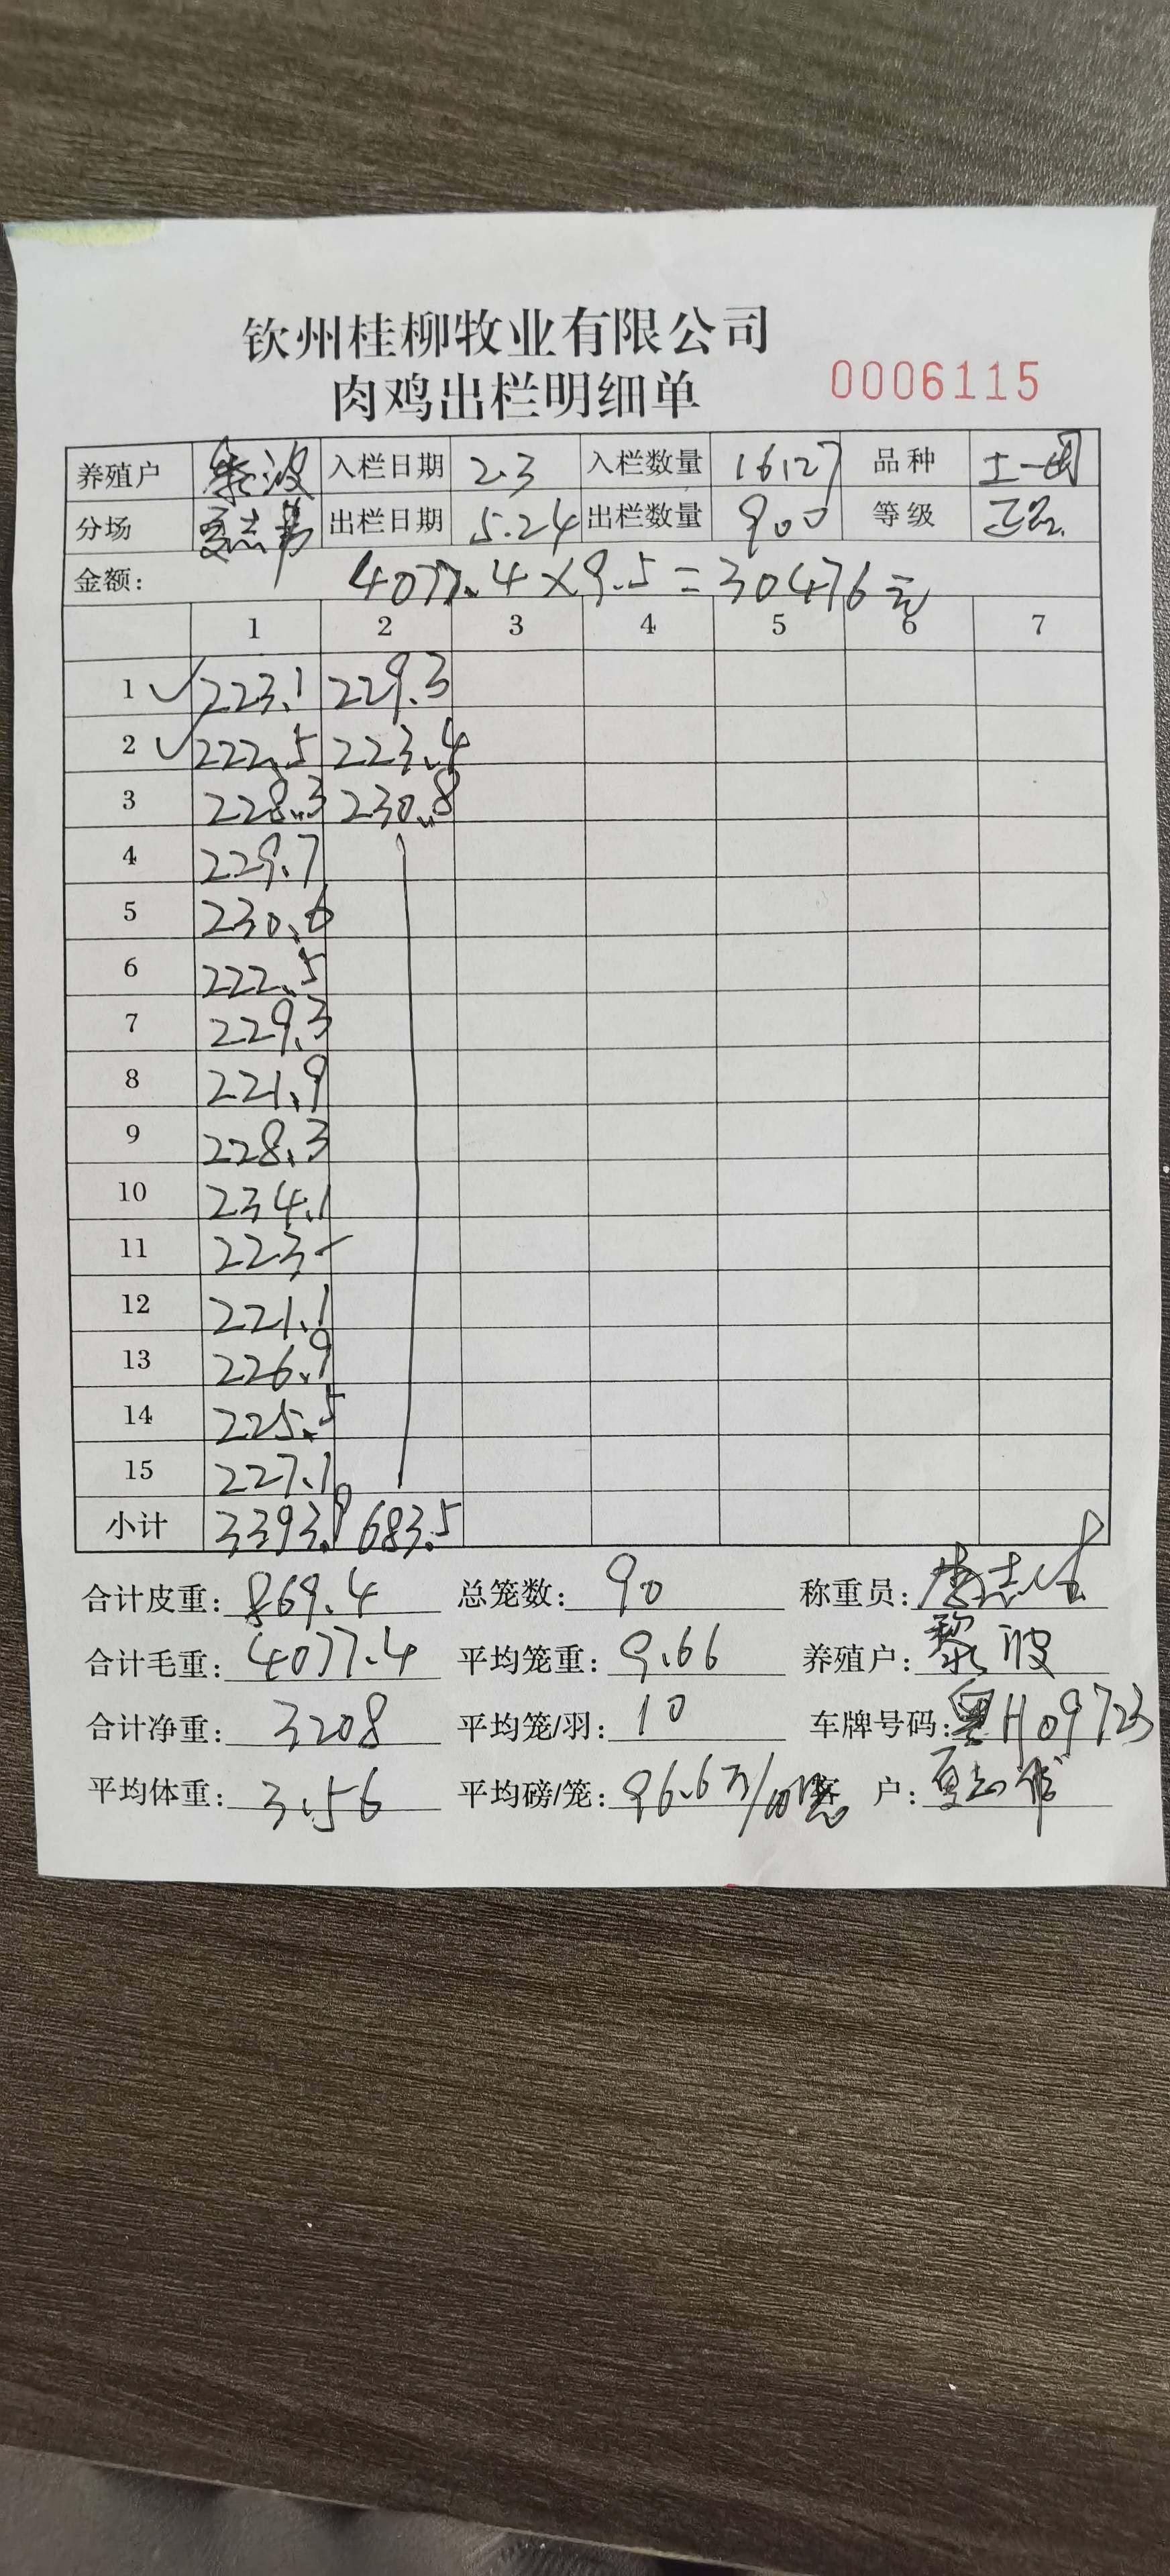 钦州桂柳牧业有限公司
肉鸡出栏明细单 0006115
养殖户 黎波 入栏日期 2.3 入栏数量 16127 品种 土一
分场 出栏日期 5.24 出栏数量 900 等级 正品
金额: 4077.4×9.5=30476元
1 2 3 4 5 6 7
1 223.1 229.3
2 222.5 223.4
3 228.3 230.8
4 229.7
5 230.6
6 222.5
7 229.3
8 221.9
9 228.3
10 234.1
11 223-
12 221.1
13 226.9
14 225.5
15 227.1
小计 3393.9 683.5
合计皮重: 869.4 总笼数: 90 称重员:
合计毛重: 4077.4 平均笼重: 9.66 养殖户: 黎波
合计净重: 3208 平均笼/羽: 10 车牌号码: 粤H09723
平均体重: 3.56 平均磅/笼: 96.6 户: